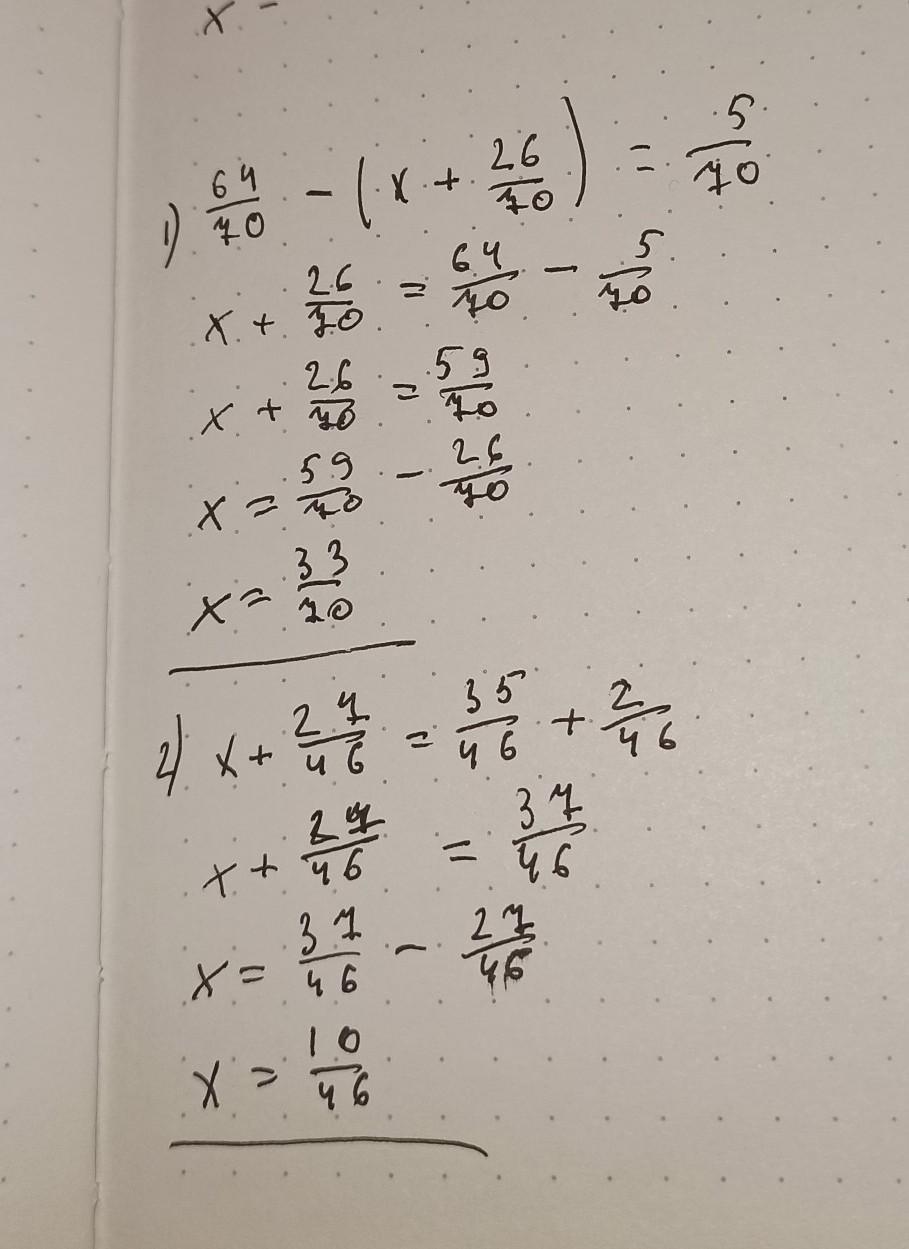 x -
1) 64/70 - (x + 26/70) = 5/70
x + 26/70 = 64/70 - 5/70
x + 26/70 = 59/70
x = 59/70 - 26/70
x = 33/70
2) x + 27/46 = 35/46 + 2/46
x + 27/46 = 37/46
x = 37/46 - 27/46
x = 10/46